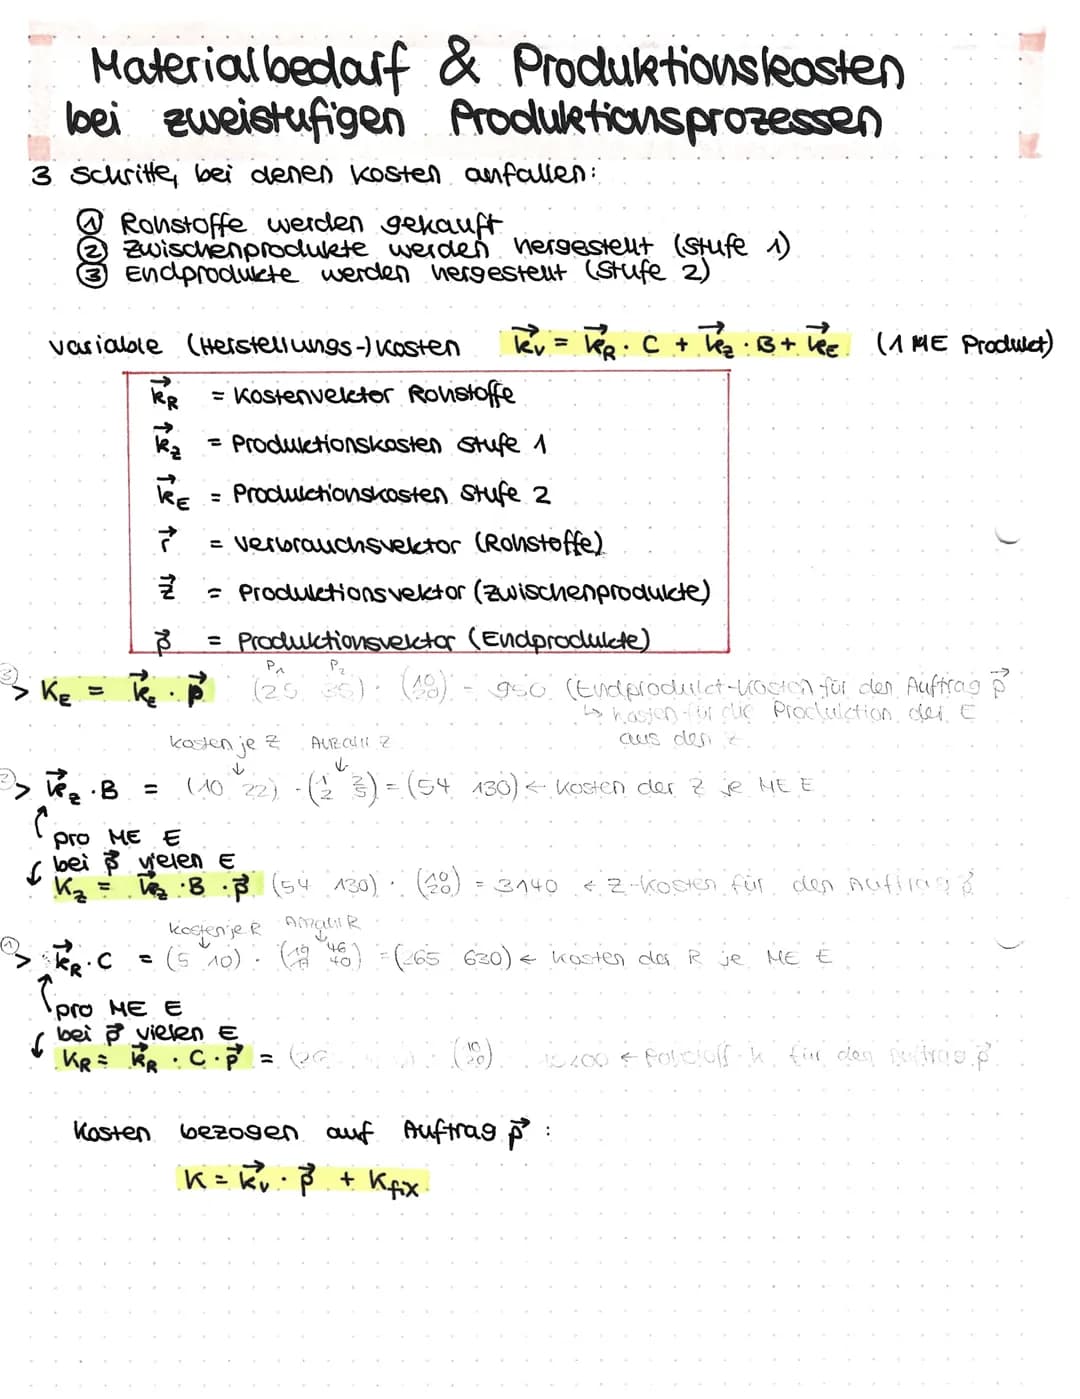 Materialbedarf & Produktionskosten
bei zweistufigen Produktionsprozessen
3 Schritte, bei denen Kosten anfallen:
① Rohstoffe werden gekauft
② Zwischenprodukte werden hergestellt (Stufe 1)
③ Endprodukte werden hergestellt (Stufe 2)
variable (Herstellungs-)kosten k⃗v = k⃗R · C + k⃗z · B + k⃗E (1 ME Produkt)
k⃗R = Kostenvektor Rohstoffe
k⃗z = Produktionskosten Stufe 1
k⃗E = Produktionskosten Stufe 2
r⃗ = Verbrauchsvektor (Rohstoffe)
z⃗ = Produktionsvektor (Zwischenprodukte)
p⃗ = Produktionsvektor (Endprodukte)
P1 P2
③ > KE = k⃗E · p⃗ (25 35) · (10 20) = 950 (Endprodukt-Kosten für den Auftrag p⃗
↳ kosten für die Produktion der E
aus den Z
kosten je Z Anzahl Z
② > k⃗z · B = (10 22) · (1 3 2 5) = (54 130) ← Kosten der Z je ME E
pro ME E
bei p⃗ vielen E
Kz = k⃗z · B · p⃗ (54 130) · (10 20) = 3140 ← Z-Kosten für den Auftrag p⃗
kosten je R Anzahl R
① > k⃗R · C = (5 10) · (19 46 40) = (265 630) ← Kosten der R je ME E
pro ME E
bei p⃗ vielen E
KR = k⃗R · C · p⃗ = · (10 20) ← Rohstoff-K für den Auftrag p⃗
Kosten bezogen auf Auftrag p⃗ :
K = k⃗v · p⃗ + Kfix